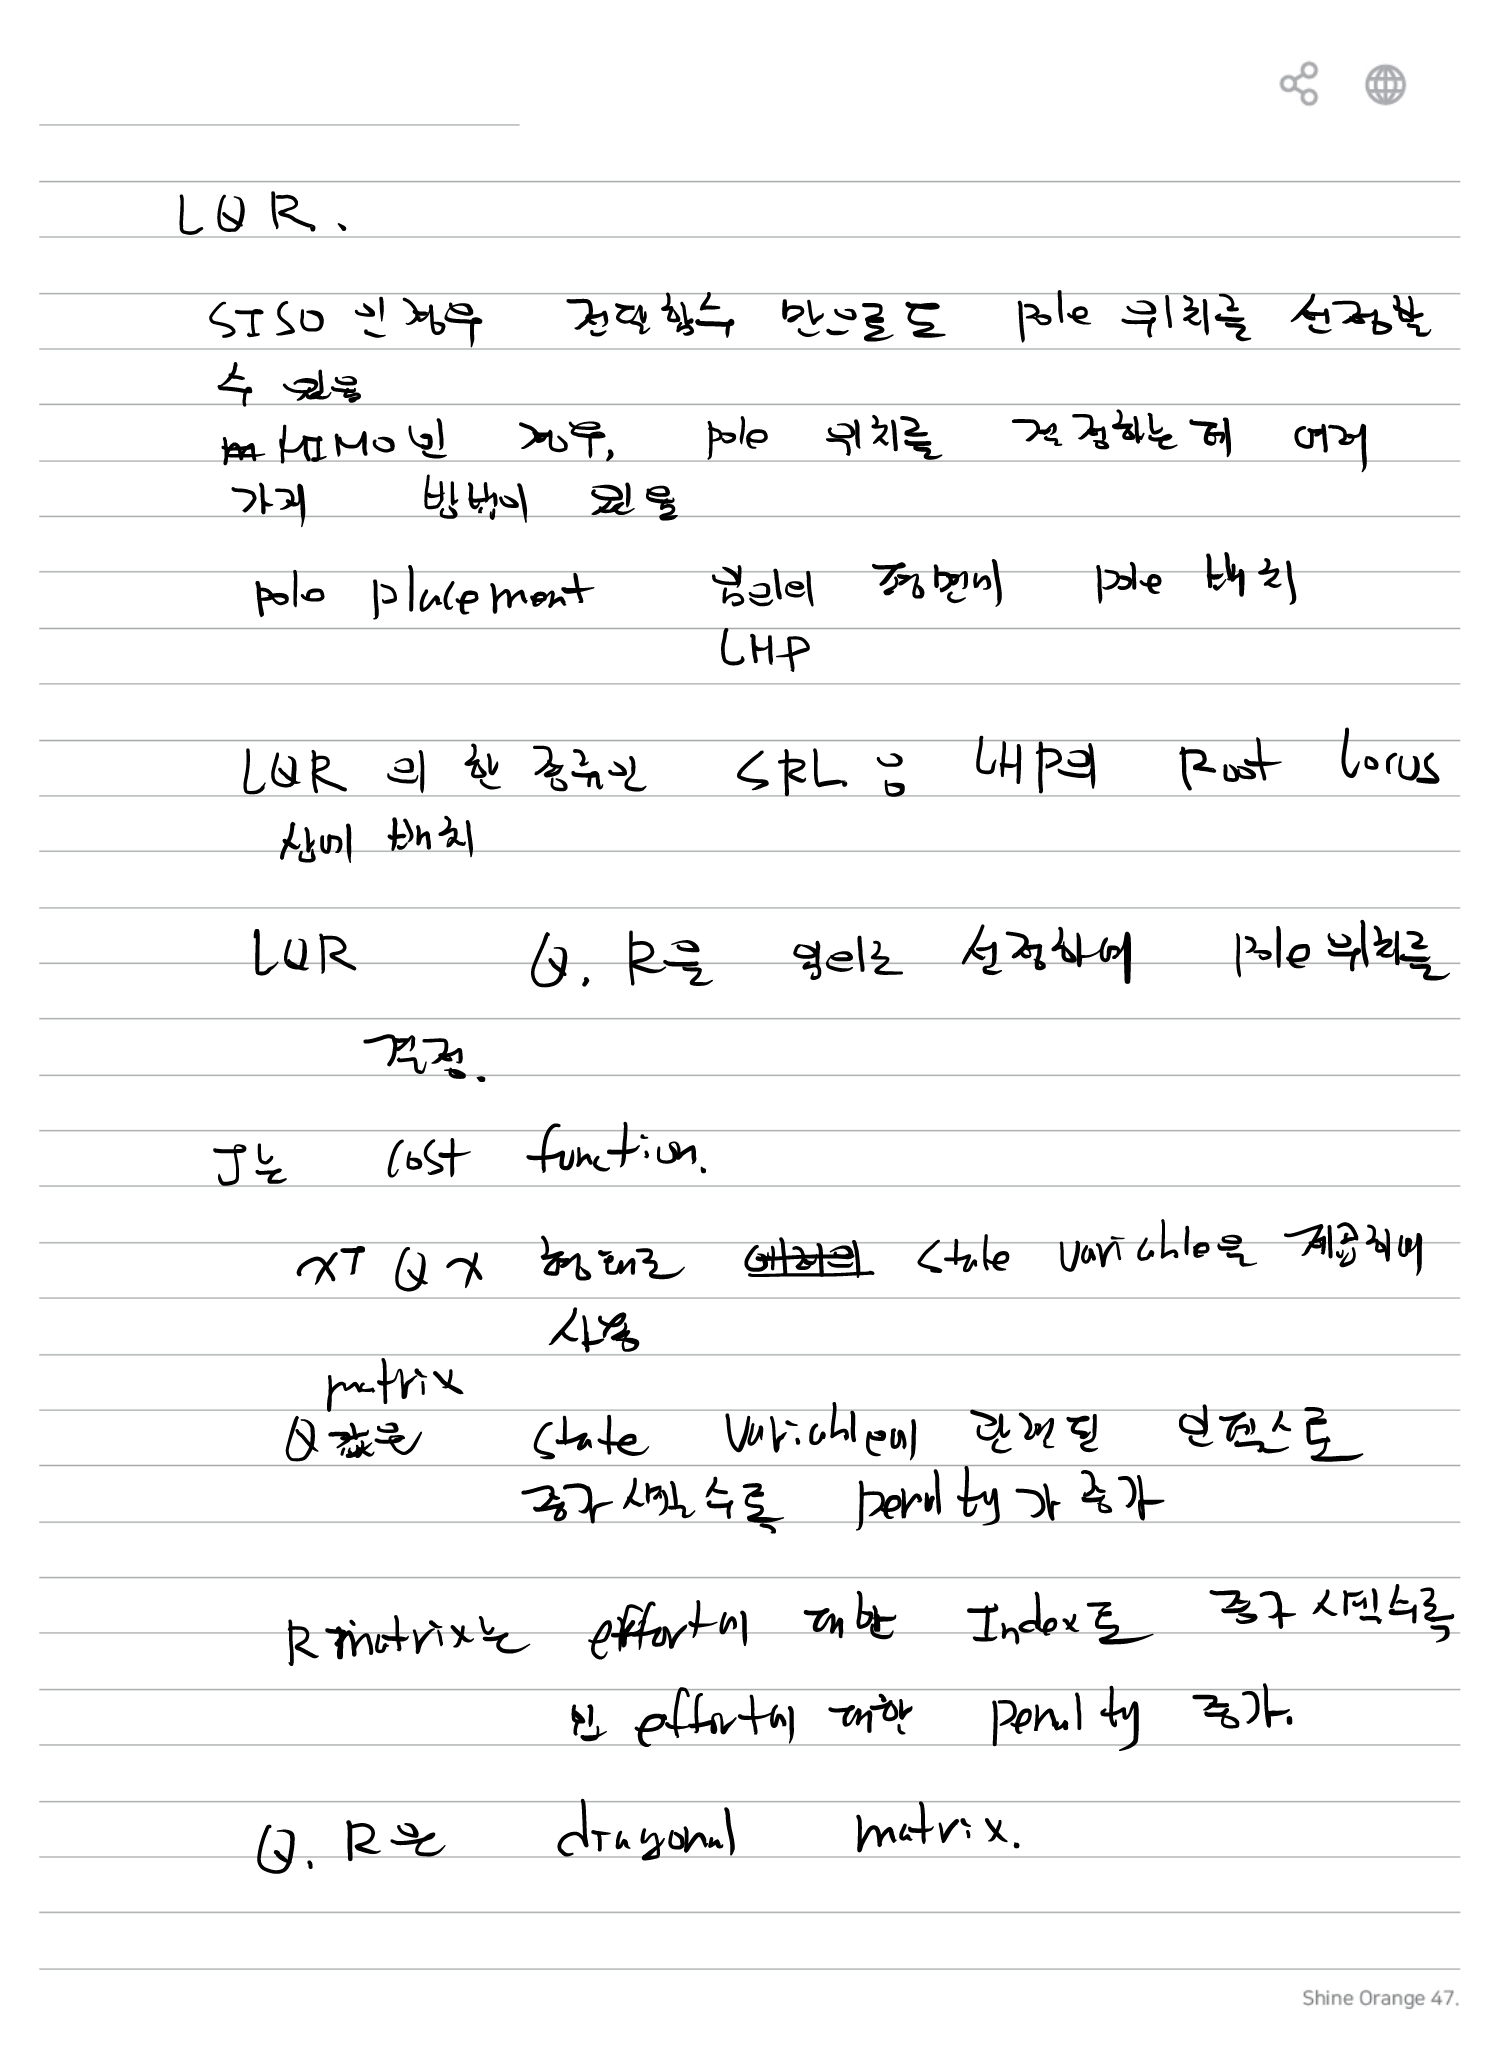 LQR.
SISO인 경우 전달함수 만으로도 pole 위치를 선정할
수 있음
MIMO인 경우, pole 위치를 결정하는데 여러
가지 방법이 있음
pole placement 평면에 pole 배치
LHP
LQR의 한 종류인 SRL은 LHP의 Root locus
상에 배치
LQR Q, R을 임의로 선정하여 pole 위치를
결정.
J는 cost function.
xT Q x 형태로 state variable을 제곱하여
사용
matrix
Q값은 state variable에 관련된 인덱스로
증가시킬수록 penalty가 증가
R matrix는 effort에 대한 Index로 증가시킬수록
effort에 대한 penalty 증가.
Q, R은 diagonal matrix.
Shine Orange 47.